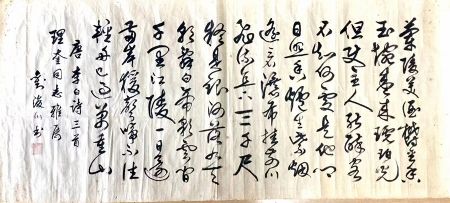 蘭陵美酒鬱金香
玉碗盛来琥珀光
但使主人能醉客
不知何處是他鄉
日照香爐生紫烟
遥看瀑布挂前川
飛流直下三千尺
疑是銀河落九天
朝辞白帝彩雲間
千里江陵一日還
兩岸猿聲啼不住
輕舟已過萬重山
唐李白诗三首
理奎同志雅属
书